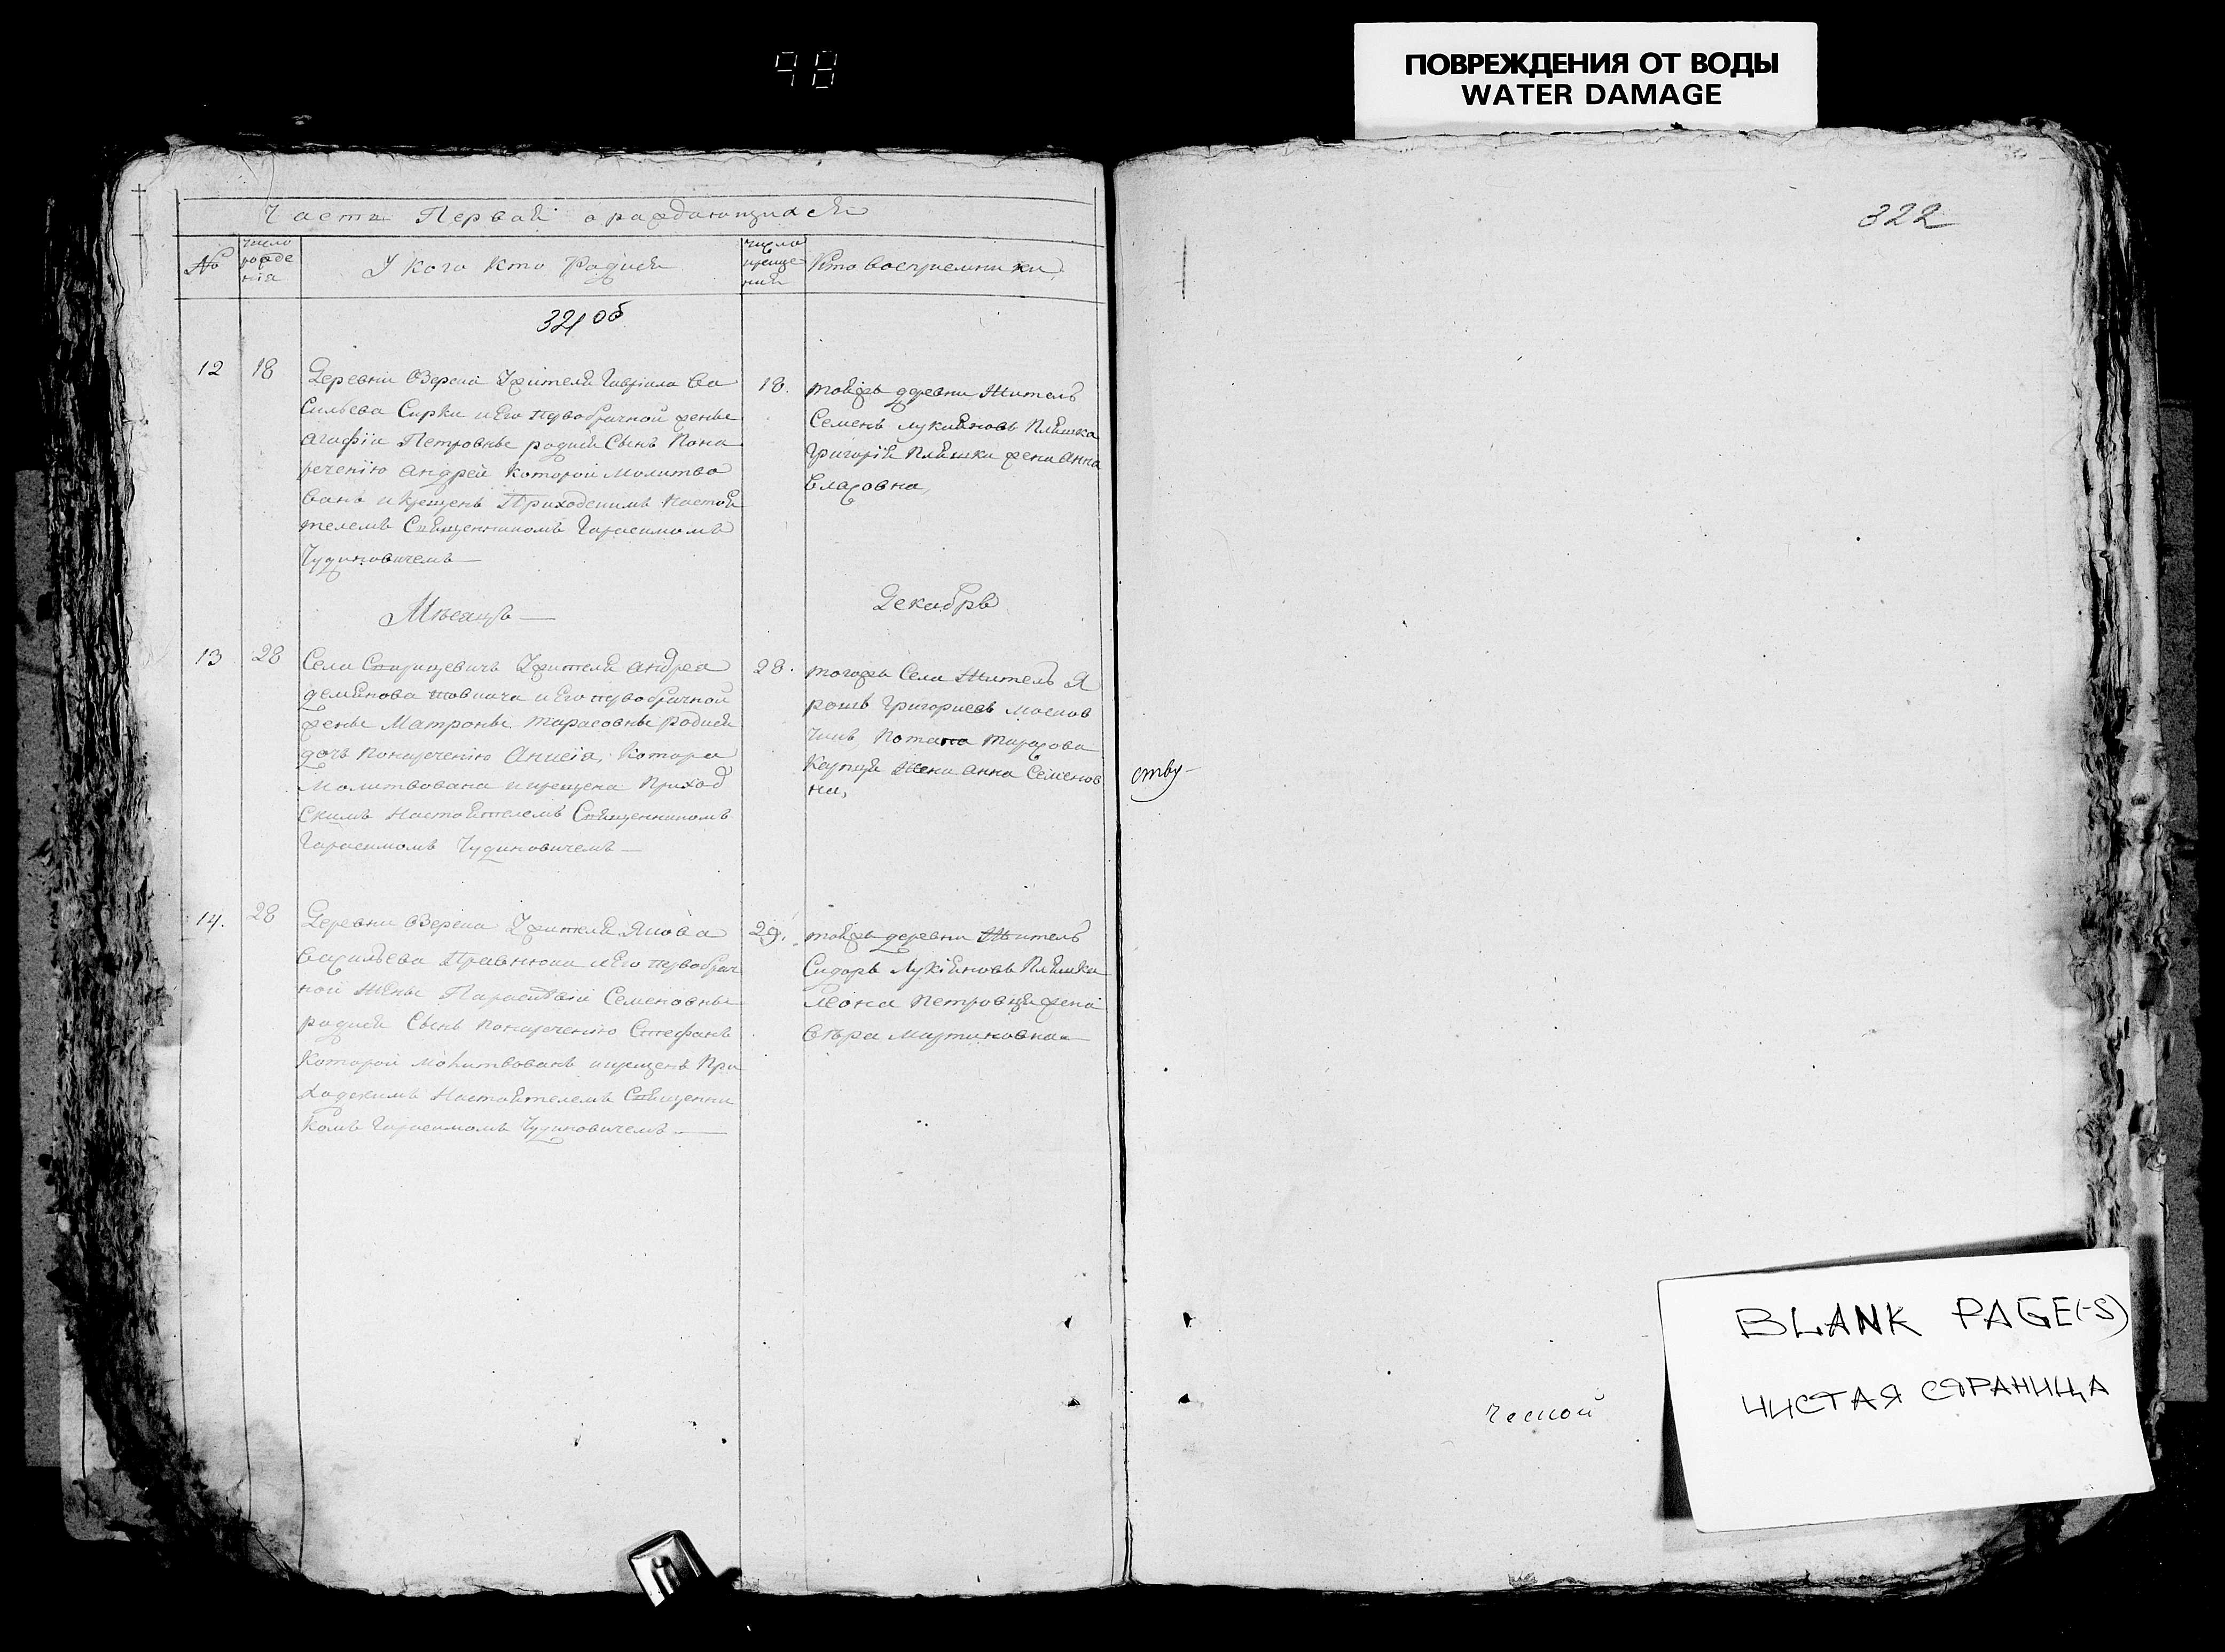 98
ПОВРЕЖДЕНИЯ ОТ ВОДЫ
WATER DAMAGE
Часть Первая о раждающихся
№
число рожде нія
У кого кто Родися
число креще ния
Кто восприемники
321 об
12
18
Деревни Озерска У жителя Гавріила Ва
сильева Сирки и Его первобрачной жены
Агафіи Петровны родися Сынъ Пона
речению Андрей которой молитво
ванъ и крещенъ Приходскимъ Настоя
телемъ Священникомъ Гарасимомъ
Чудиновичемъ
18.
тойжъ деревни Житель
Семенъ Лукияновъ Пляшка
Григорія Пляшки жена Анна
Власовна,
Мѣсяцъ
Декабръ
13
28
Села У жителя Андрея
Демянова и Его первобрачной
жены Матроны Тарасовны родися
дочь Понаречению Анисія, котора
Молитвована и крещена Приход
скимъ Настоятелемъ Священникомъ
Гарасимомъ Чудиновичемъ
28.
тогожъ Села Житель Я
Григориевъ
Тарасова
жена Анна Семенов
на,
14.
28
Деревни Озерска У жителя Якова
Васильева и Его первобрач
ной жены Параскевіи Семеновны
родися Сынъ Понаречению Стефанъ
которой молитвованъ и крещенъ При
ходскимъ Настоятелемъ Священни
комъ Гарасимомъ Чудиновичемъ
29.
тойжъ деревни Житель
Сидоръ Лукіяновъ Пляшка
жена
Вѣра Мартиновна
322
ству
ческой
BLANK PAGE(-S)
ЧИСТАЯ СТРАНИЦА